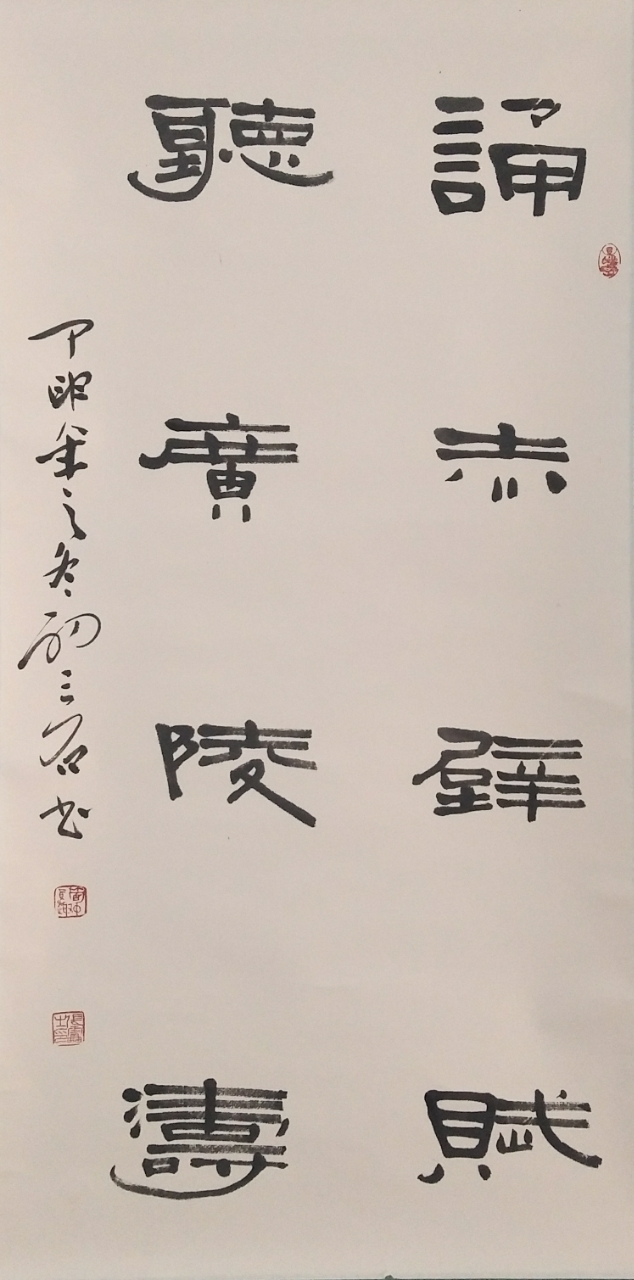 誦赤壁賦
聽廣陵濤
丁卯年之冬初三石书